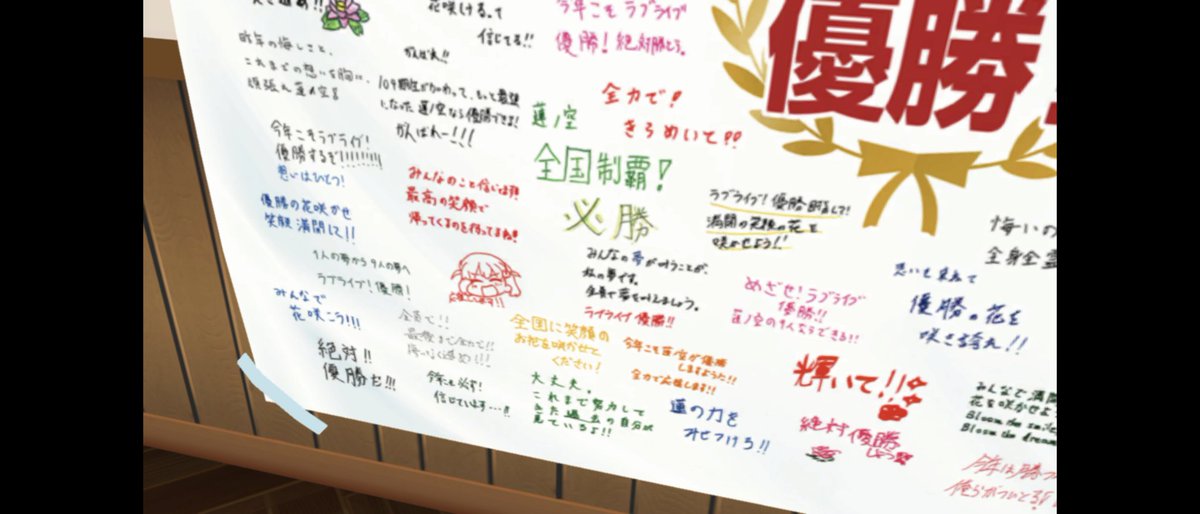 花咲けるって
信じてる!!
今年こそラブライブ
優勝!絶対勝とう。
優勝
昨年の悔しさと、
これまでの想いを胸に、
頑張れ蓮ノ空
がんばれ!!
104期生が加わって、もっと最強
になった蓮ノ空なら優勝できるよ!
がんばれー!!!
全力で!
きらめいて!!
蓮ノ空
全国制覇!
必勝
今年こそラブライブ!
優勝するぞ!!!!!!!!
想いはひとつ!
優勝の花咲かせ
笑顔満開して!!
みんなのこと信じてます!!
最高の笑顔で
帰ってくるのを待ってるね!
ラブライブ!優勝目指して!
満開の笑顔の花を
咲かせよう!!
悔いの
全身全霊
1人の夢から9人の夢へ
ラブライブ!優勝!
応援しています!!
みんなの夢が叶うことが、
私の夢です。
全員で夢を叶えましょう。
ラブライブ優勝!!
めざせ!ラブライブ
優勝!!
蓮ノ空の9人ならできる!!
想いを束ねて
優勝の花を
咲き誇れ!!
みんなで
花咲こう!!!
全員で!!
最後まで全力で!!
悔いなく進め!!!
全国に笑顔の
お花を咲かせて
ください!
今年こそ蓮ノ空が優勝
しますように!!
全力で応援します!!
絶対!!
優勝だ!!!
今年も必ず!
信じています…!!
大丈夫。
これまで努力して
きた過去の自分が
見ているよ!!
蓮の力を
みせつけろ!!
輝いて!!
絶対優勝
しよう
みんなで満開
花を咲かせよう
Bloom the smile
Bloom the dream
今年は勝つ
俺らがついとる!!